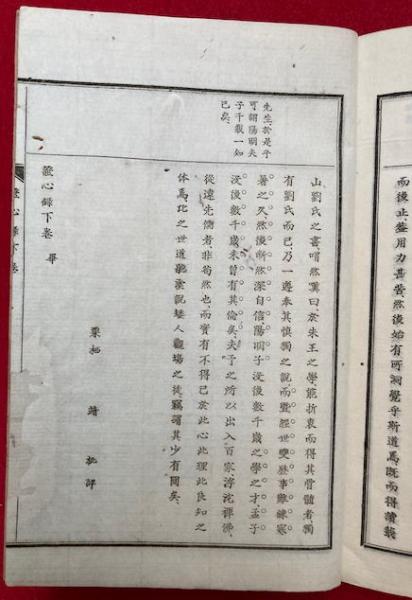 而後止、蓋用力甚苦、然後始有所洞覺乎斯道焉、既而得讀蕺
先生、於是乎
可謂陽明夫
子千載一知
己矣、
山劉氏之書、喟然歎曰、於朱王之學、能折衷而得其骨髓者、獨
有劉氏而已、乃一遵奉其愼獨之說、而歷世變、事難練寒
暑之久、然後斷然深自信陽明子沒後數千歲之學之才、孟子
沒後數千歲未嘗有其倫矣、夫子之所以出入百家、涉沱禪佛、
從違先儒者、非苟然也、而實有不得已於此心此理此良知之
体焉、比之世道聽塗說、矮人觀場之徒、竊謂其少有間矣、
栗栖 靖 批評
證心錄下卷 畢
證心錄下卷